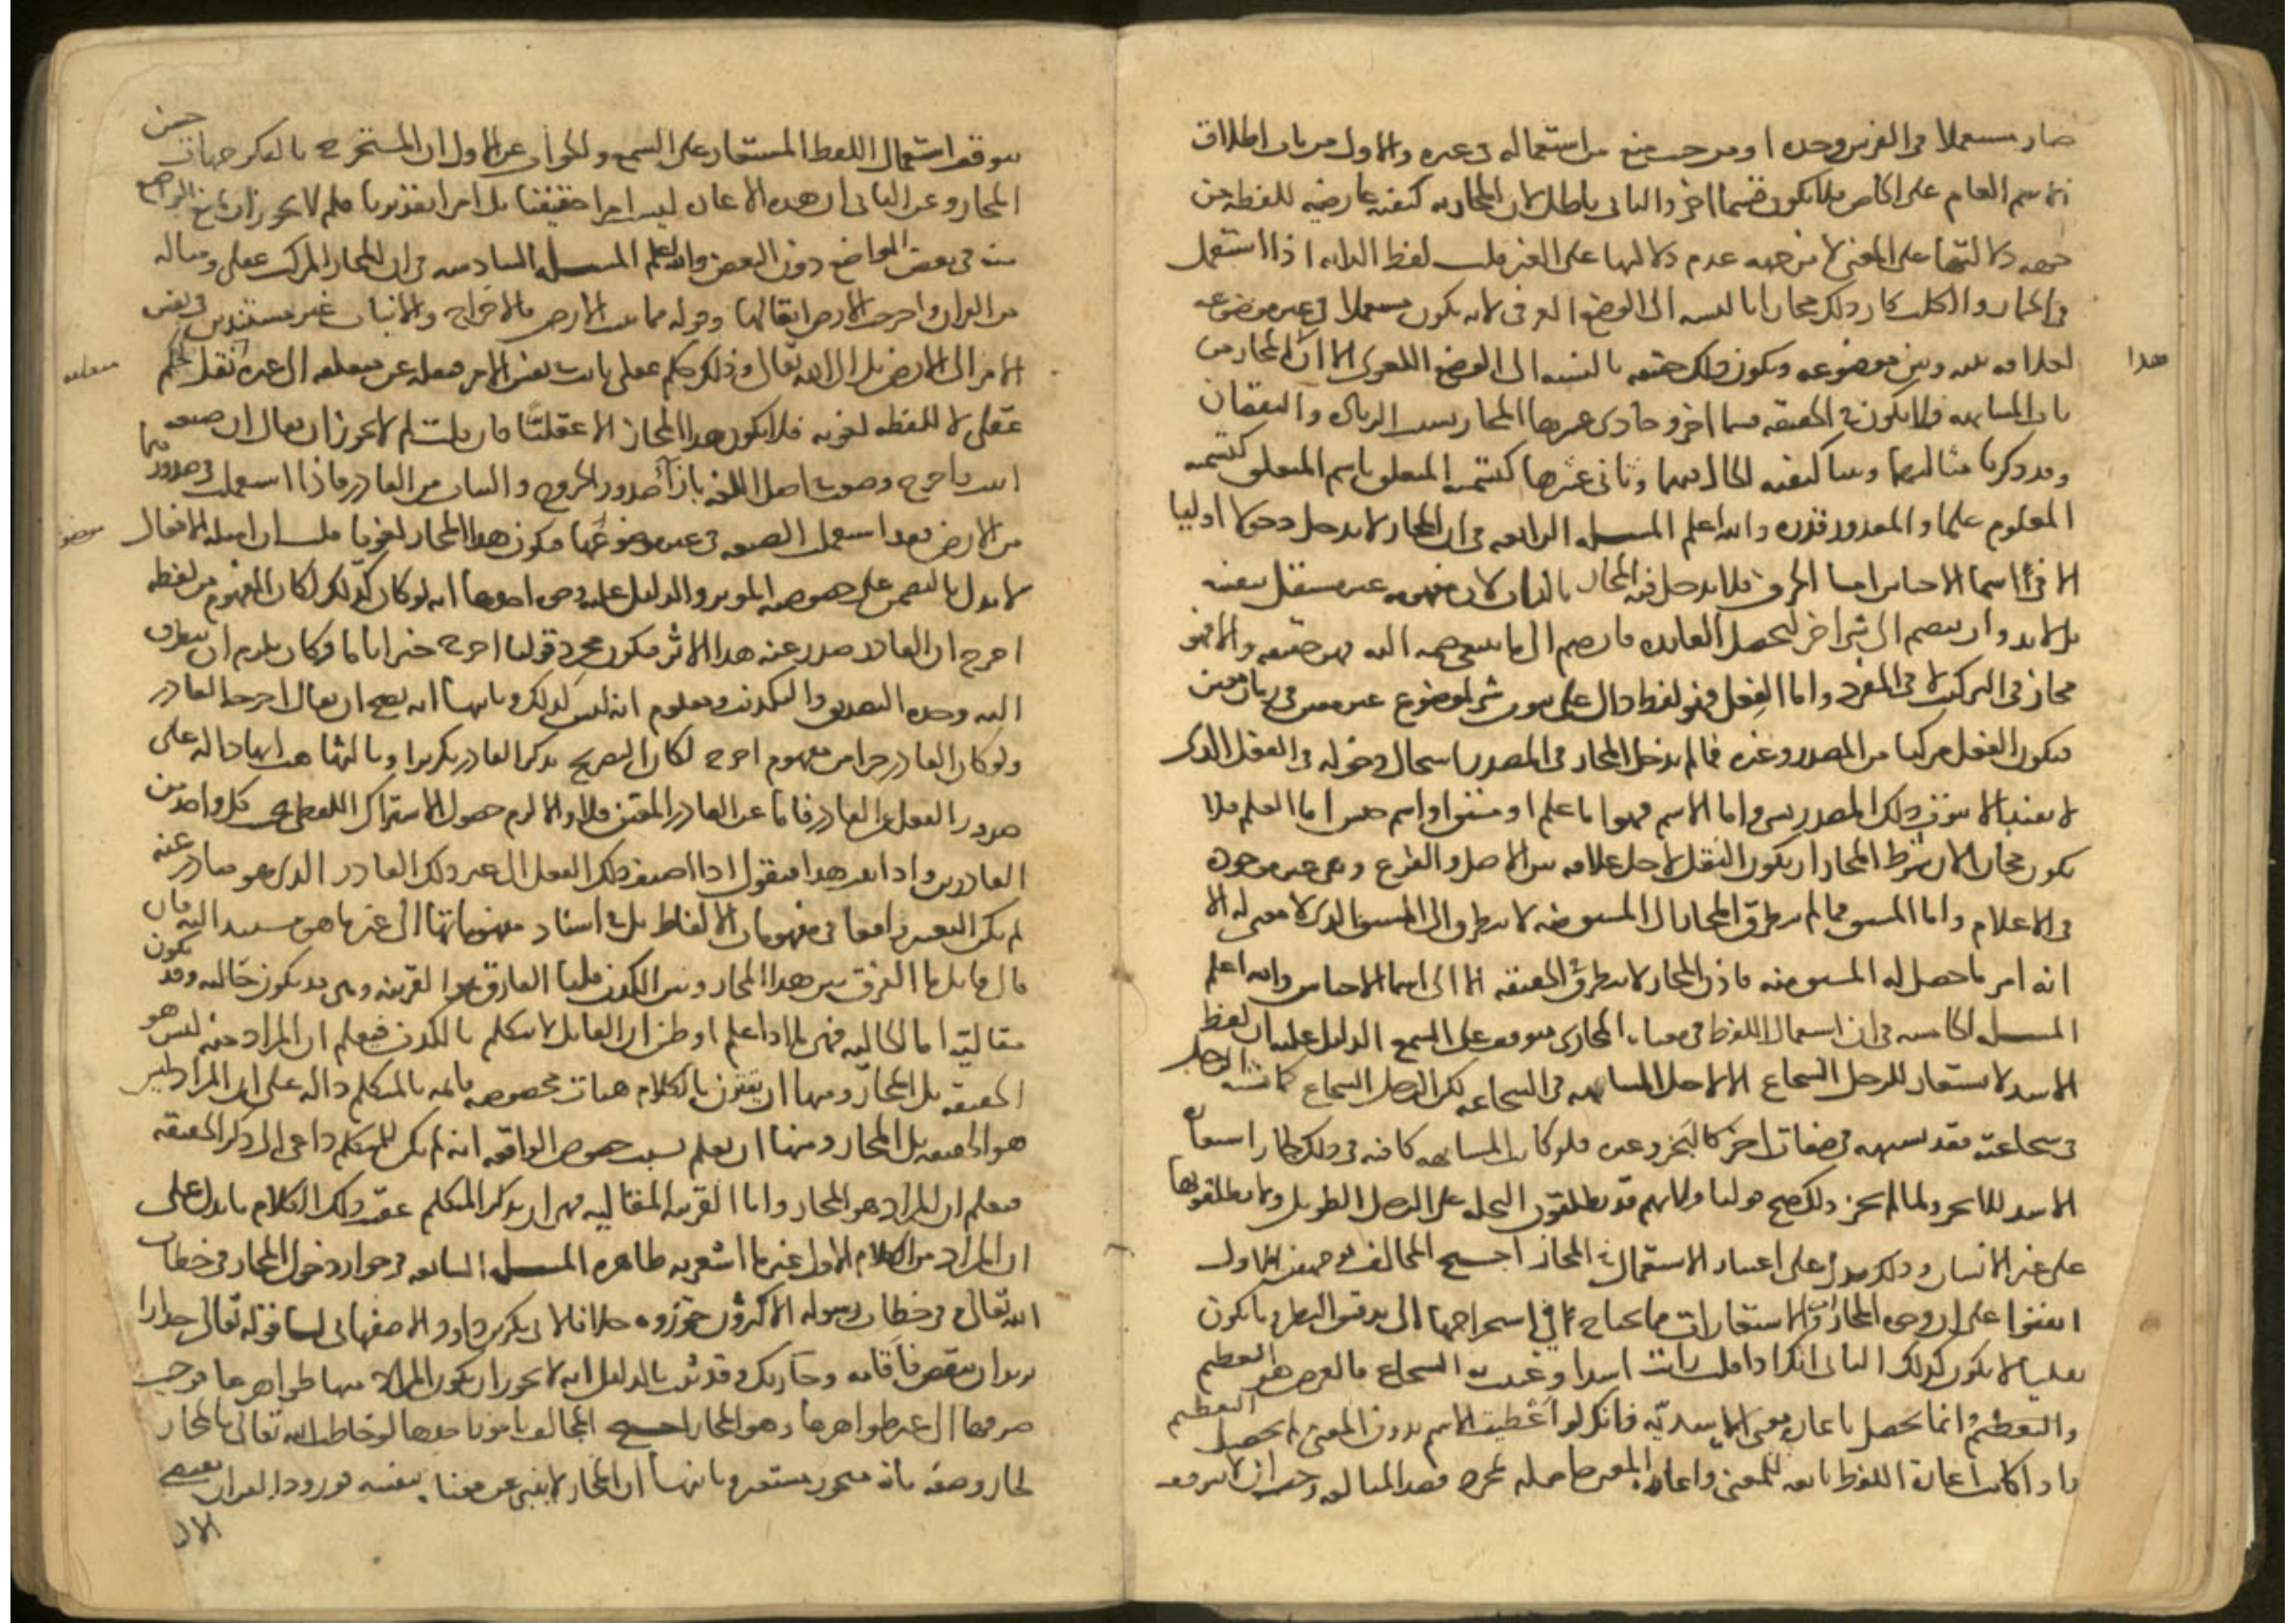 صار مستعملا في الفرس وحده او من حيث منع من استعماله في غيره والاول من باب اطلاق
اسم العام على الخاص فلا يكون قسما اخر والثاني باطل لان المجازية كيفية عارضة للفظة من
جهة دلالتها على المعنى لا من جهة عدم دلالتها على الغير قلت لفظ الدابة اذا استعمل
في الحمار والكلب كان ذلك مجازا بالنسبة الى الوضع العرفي لانه يكون مستعملا في غير موضوعه
لعلاقة بينه وبين موضوعه ويكون ذلك حقيقة بالنسبة الى الوضع اللغوي الا ان المجاز من هذا
باب المشابهة فلا يكون في الحقيقة قسما اخر وحادي عشرها المجاز بسبب الزيادة والنقصان
وقد ذكرنا مثاليهما وبينا كيفية الحال فيهما وثاني عشرها كتسمية المتعلق باسم المتعلق كتسمية
المعلوم علما والمقدور قدرة والله اعلم المسله الرابعه في ان المجاز لا يدخل دخولا اوليا
الا في اسما الاجناس اما الحرف فلا يدخل فيه المجاز بالذات لان مفهومه غير مستقل بنفسه
بل لا بد وان ينضم الى شي اخر لتحصل الفايدة فان ضم الى ما ينبغي ضمه اليه فهو حقيقة والا فهو
مجاز في التركيب لا في المفرد واما الفعل فهو لفظ دال على ثبوت شي لموضوع غير معين في زمان معين
فيكون الفعل مركبا من المصدر وغيره فما لم يدخل المجاز في المصدر استحال دخوله في الفعل الذي
لا يفيد الا ثبوت ذلك المصدر لشي واما الاسم فهو اما علم او مشتق او اسم جنس اما العلم فلا
يكون مجازا لان شرط المجاز ان يكون النقل لاجل علاقة بين الاصل والفرع وهي غير موجودة
في الاعلام واما المشتق فما لم يتطرق المجاز الى المشتق منه لا يتطرق الى المشتق الذي لا معنى له الا
انه امر ما حصل له المشتق منه فاذن المجاز لا يتطرق في الحقيقة الا الى اسما الاجناس والله اعلم
المسله الخامسه في ان استعمال اللفظ في معناه المجازي موقوف على السمع الدليل عليه ان لفظ
الاسد لا يستعار للرجل الشجاع الا لاجل المشابهه في الشجاعه لكن الرجل الشجاع كما شابه الاسد
في شجاعته فقد يشبهه في صفات اخر كالبخر وغيره فلو كانت المشابهه كافيه في ذلك لجاز استعارة
الاسد للابخر ولما لم يجز ذلك صح قولنا ولانهم قد يطلقون النخله على الرجل الطويل ولا يطلقونها
على غير الانسان وذلك يدل على اعتبار الاستعمال في المجاز احتج المخالف من وجهين الاول
اتفقوا على ان وجوه المجازات والاستعارات مما يحتاج في استخراجها الى تدقيق النظر وما يكون
نقليا لا يكون كذلك الثاني انك اذا قلت رايت اسدا وعنيت به الشجاع فالغرض هو التعظيم
والتعظيم انما يحصل باعارة معنى الاسدية فانك لو اعطيت الاسم بدون المعنى لم يحصل التعظيم
واذا كانت اعارة اللفظ تابعه للمعنى واعارة المعنى حاصله لمجرد قصد المبالغه وجب ان لا يتوقف
يتوقف استعمال اللفظ المستعار على السمع والجواب عن الاول ان المستخرج بالفكر جهات حسن
المجاز وعن الثاني ان هذه الاعارة ليست امرا حقيقيا بل امرا تقديريا فلم لا يجوز ان يمنع الواضع
منه في بعض المواضع دون البعض والله اعلم المسله السادسه في ان المجاز المركب عقلي ومثاله
من القران واخرجت الارض اثقالها وقوله مما تنبت الارض فالاخراج والانبات غير مستندين في نفس
الامر الى الارض بل الى الله تعالى وذلك حكم عقلي ثابت في نفس الامر فنقله عن متعلقه الى غيره نقل لحكم
عقلي لا للفظه لغويه فلا يكون هذا المجاز الا عقليا فان قلت لم لا يجوز ان يقال ان صيغه
انبت واخرج وضعت في اصل اللغه بازا صدور الخروج والنبات من القادر فاذا استعملت في صدورهما
من الارض فقد استعملت الصيغه في غير موضوعها فيكون هذا المجاز لغويا قلت ان امثله الافعال
لا تدل بالتضمن على خصوصيه الموثر والدليل عليه وجوه احدها انه لو كان كذلك لكان المفهوم من لفظه
اخرج ان القادر صدر عنه هذا الاثر فيكون مجرد قولنا اخرج خبرا تاما وكان يلزم ان يتطرق
اليه وحده التصديق والتكذيب ومعلوم انه ليس كذلك وثانيها انه يصح ان يقال اخرجه القادر
ولو كان القادر جزا من مفهوم اخرج لكان التصريح بذكر القادر تكريرا وثالثها هب انها داله على
صدور الفعل عن القادر فاما عن القادر المعين فلا والا لزم حصول الاشتراك اللفظي كل واحد من
القادرين واذا ثبت هذا فنقول اذا اضيف ذلك الفعل الى غير ذلك القادر الذي هو صادر عنه
لم يكن التغيير واقعا في مفهومات الالفاظ بل في اسناد مفهوماتها الى غير ما هو مستند اليه فان
قال قايل ما الفرق بين هذا المجاز وبين الكذب قلنا الفارق هو القرينه وهي قد تكون حاليه وقد تكون
مقاليه اما الحاليه فهي ما اذا علم او ظن ان القايل لا يتكلم بالكذب فيعلم ان المراد منه ليس هو
الحقيقه بل المجاز ومنها ان يقترن بالكلام هيات مخصوصه قايمه بالمتكلم داله على ان المراد ليس
هو الحقيقه بل المجاز ومنها ان يعلم بسبب خصوص الواقعه انه لم يكن للمتكلم داعي الى ذكر الحقيقه
فيعلم ان المراد هو المجاز واما القرينه المقاليه فهي ان يذكر المتكلم عقيب ذلك الكلام ما يدل على
ان المراد من الكلام الاول غير ما اشعر به ظاهره المسله السابعه في جواز دخول المجاز في خطاب
الله تعالى وفي خطاب رسوله الاكثرون جوزوه خلافا لابي بكر بن داود الاصفهاني لنا قوله تعالى جدارا
يريد ان ينقض فاقامه وجا ربك وقد ثبت بالدليل انه لا يجوز ان يكون المراد منها ظواهرها فوجب
صرفها الى غير ظواهرها وهو المجاز احتج المخالف بامور احدها لو خاطب الله تعالى بالمجاز
لجاز وصفه بانه متجوز ومستعير وثانيها ان المجاز لا ينبي عن معناه بنفسه فورود القران به يقتضي
الال